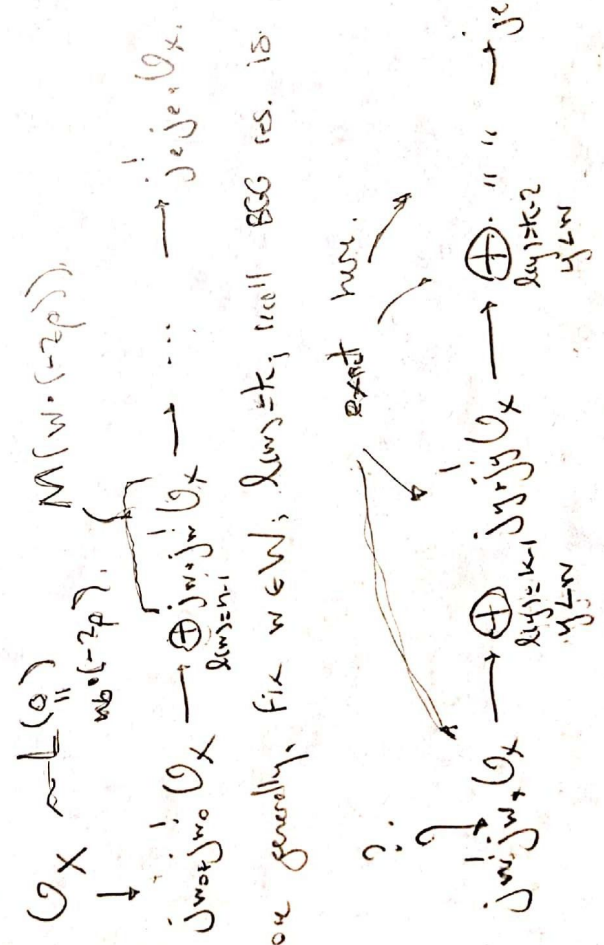 O_X ~ L(0)
"
w_0·(-2ρ).
M(w·(-2ρ)).
↓
j_{w_0*} j_{w_0}^! O_X → ⊕ j_{w*} j_w^! O_X → ... → j_{e*} j_e^! O_X.
l(w)=n-1
ore generally, fix w ∈ W, l(w)=k, recall BGG res. is
?. exact here.
j_{w*} j_w^! O_X → ⊕ j_{y*} j_y^! O_X → ⊕ " " → je
l(y)=k-1 l(y)=k-2
y<w y<w